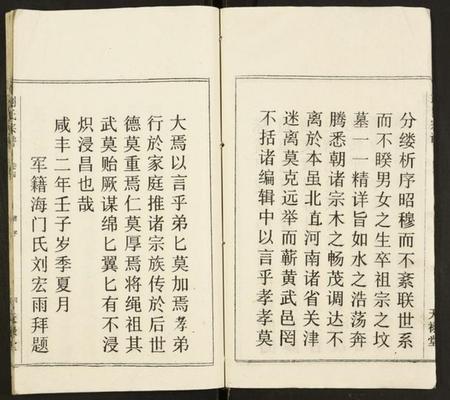 分缕析序昭穆而不紊联世系
而不睽男女之生卒祖宗之坟
墓一一精详旨如水之浩荡奔
腾悉朝诸宗木之畅茂调达不
离於本虽北直河南诸省关津
迷离莫克远举而蕲黄武邑罔
不括诸编辑中以言乎孝孝莫
天禄堂
大焉以言乎弟匕莫加焉孝弟
行於家庭推诸宗族传於后世
德莫重焉仁莫厚焉将绳祖其
武莫贻厥谋绵匕翼匕有不浸
炽浸昌也哉
咸丰二年壬子岁季夏月
军籍海门氏刘宏雨拜题